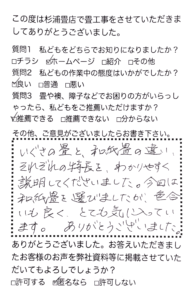 この度は杉浦畳店で畳工事をさせていただきま
してありがとうございました。
質問1 私どもをどちらでお知りになりましたか？
□チラシ ☑ホームページ □紹介 □その他
質問2 私どもの作業中の態度はいかがでしたか？
☑良い □普通 □悪い
質問3 畳や襖、障子などでお困りの方がいらっし
ゃったら、私どもをご推薦いただけますか？
☑推薦できる □推薦できない □分からない
その他、ご意見がございましたらお書き下さい。
いぐさの畳と、和紙畳の違い、
それぞれの特長を、わかりやすく
説明してくださいました。今回は
和紙畳を選びましたが、色合
いも良く、とても気に入ってい
ます。ありがとうございました。
ありがとうございました。お答えいただきまし
たお客様のお声を弊社資料等に掲載させていた
だいてもよろしでしょうか？
□許可する ☑匿名なら □許可しない